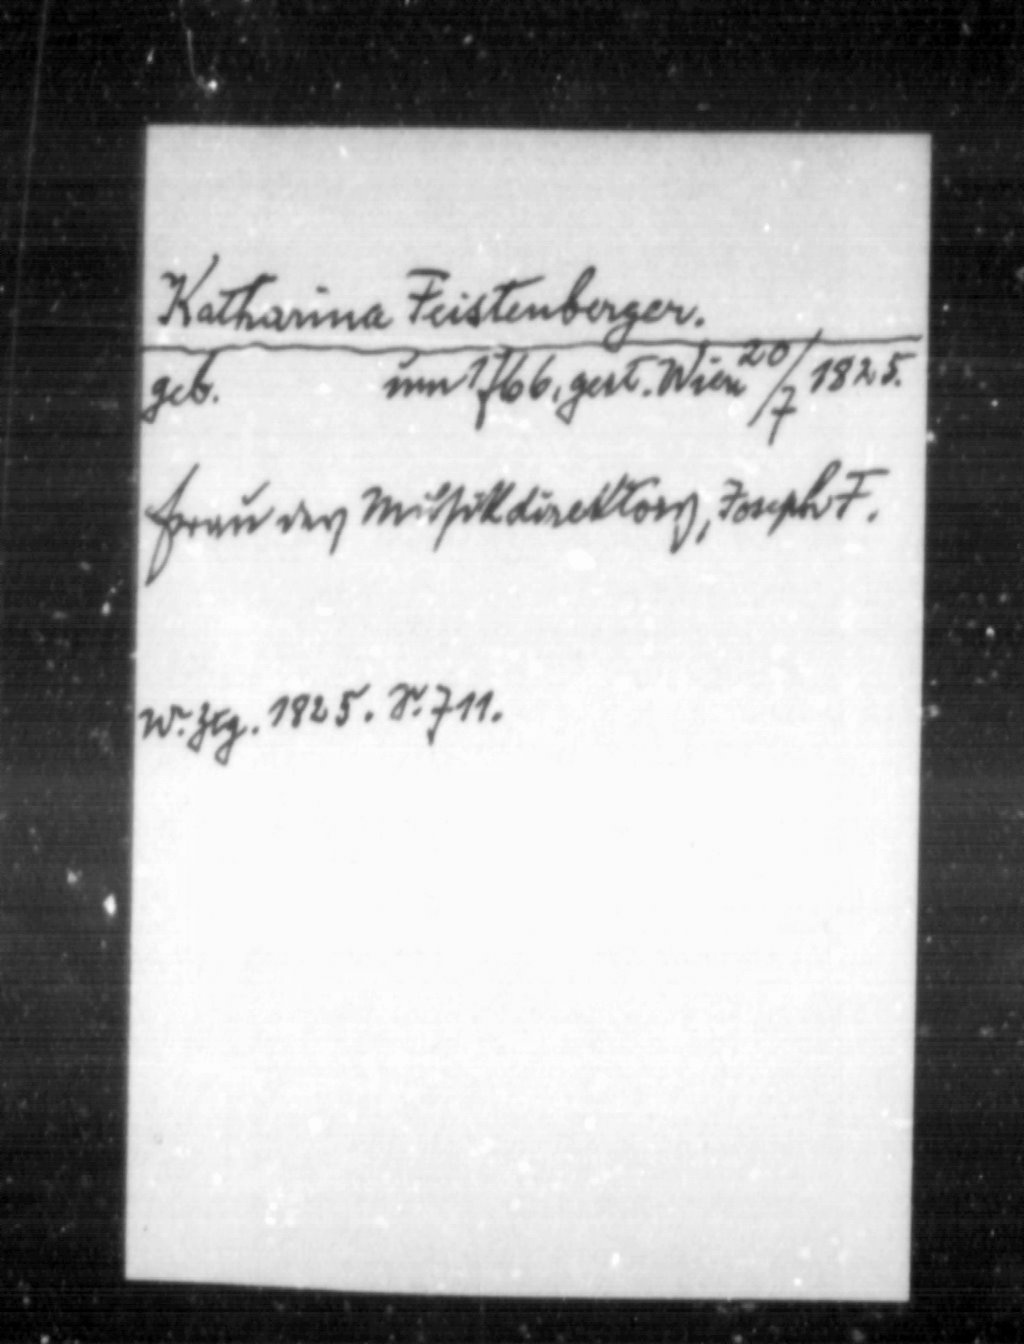 Katharina Feistenberger.
geb. um 1766, gest. Wien 20/7 1825.
Frau des Musikdirektors, Joseph F.
W. Ztg. 1825. S. 711.